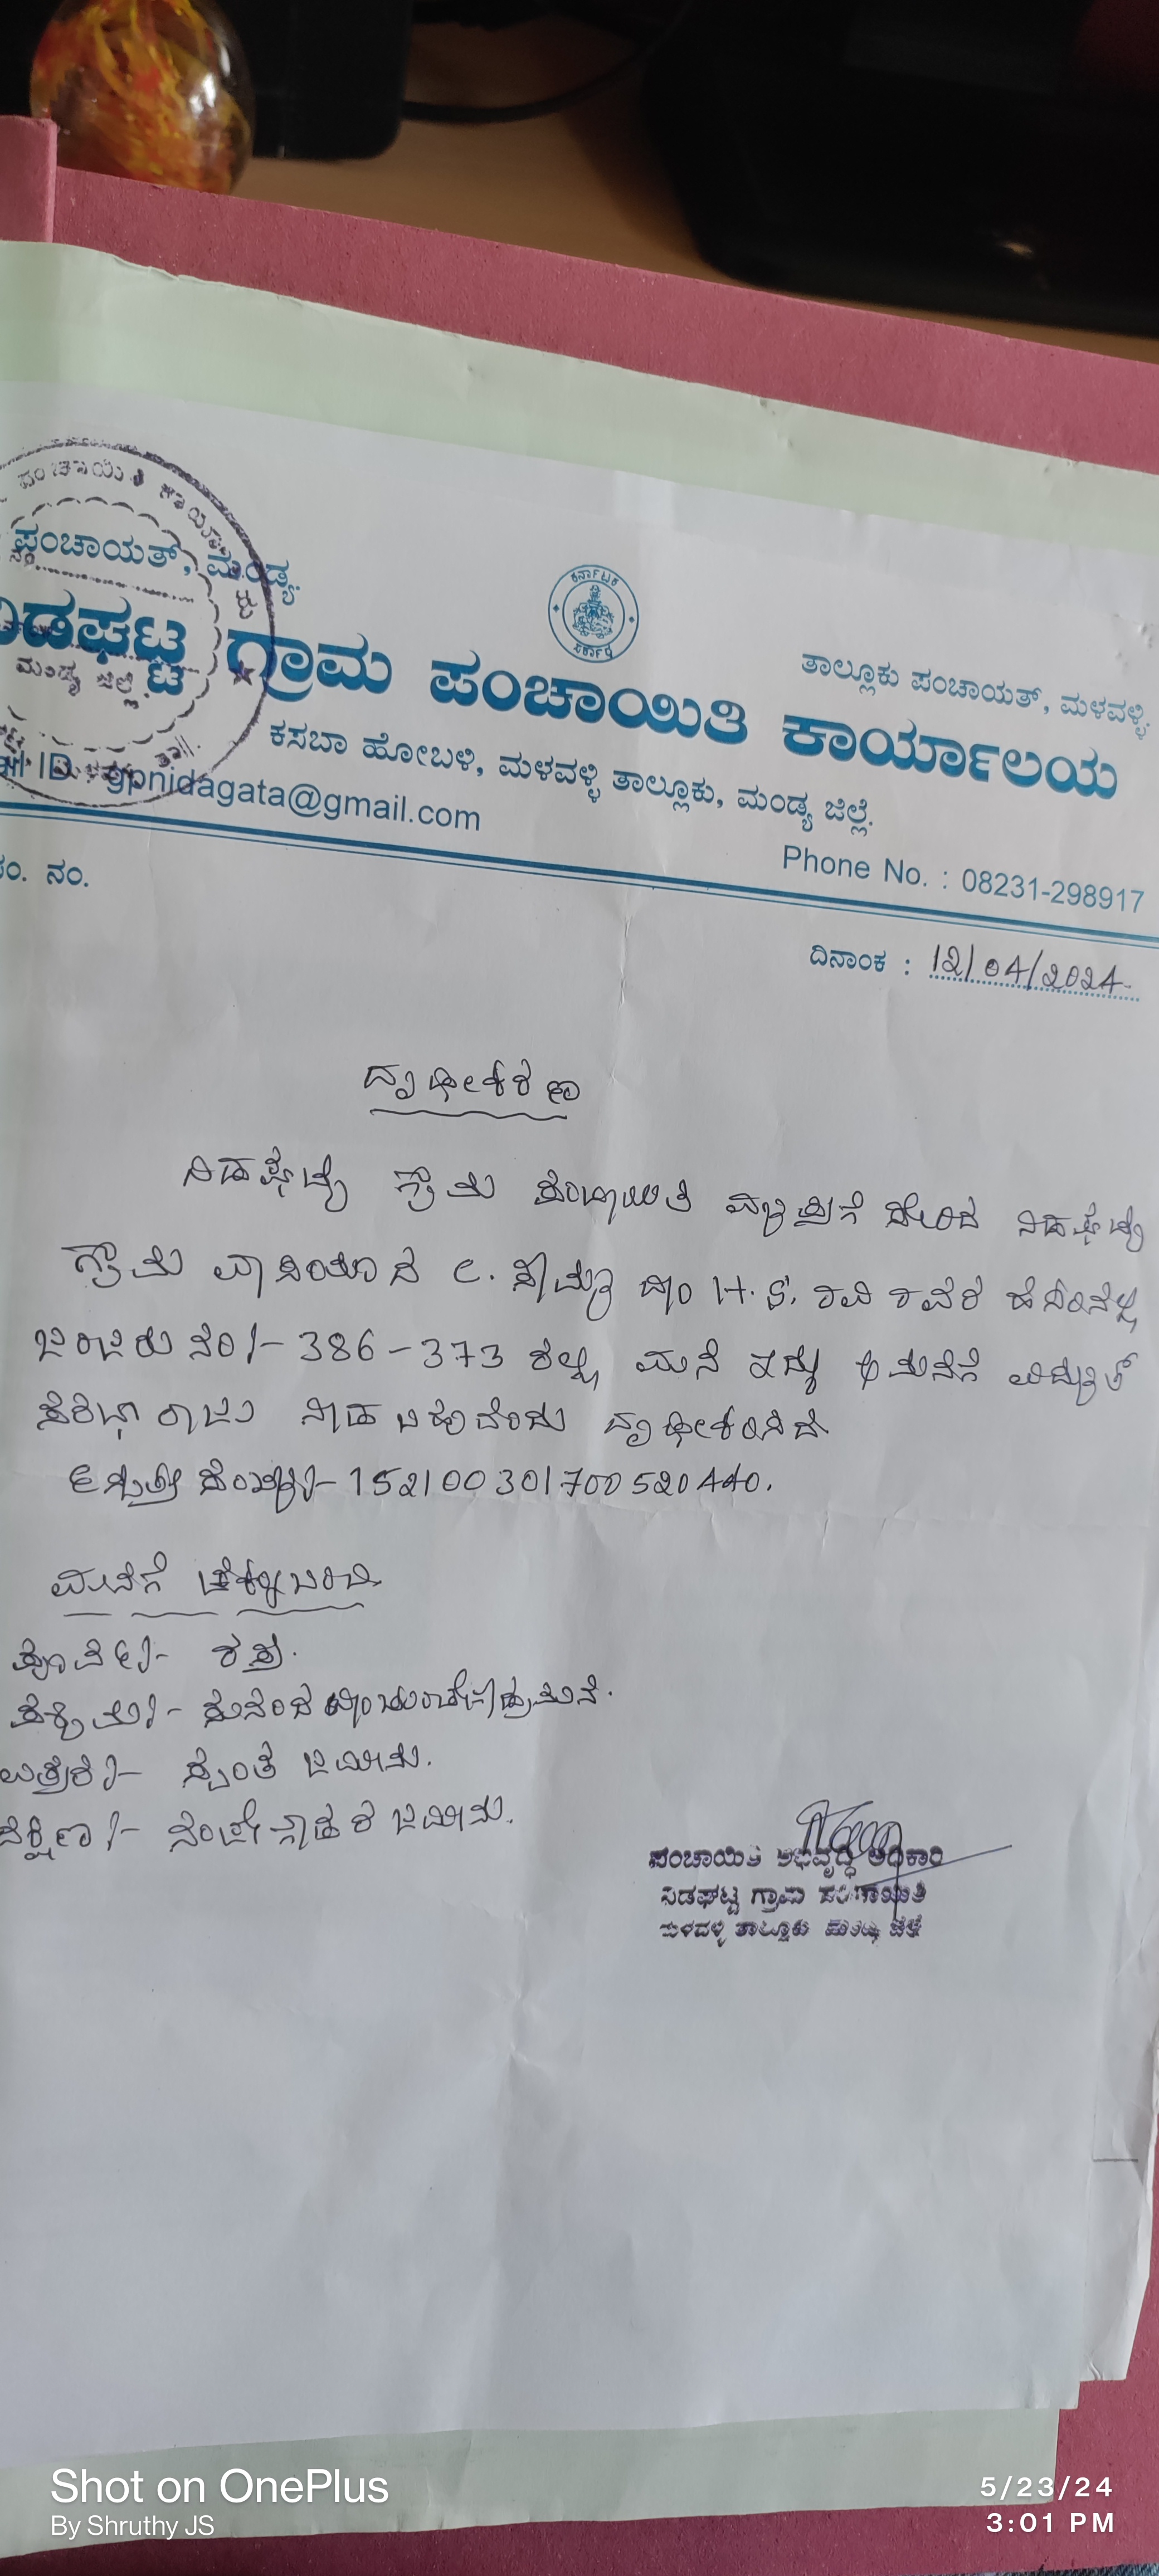 ಪಂಚಾಯಿತಿ
ಪಂಚಾಯತ್, ಮಂಡ್ಯ.
ಕರ್ನಾಟಕ
ಸರ್ಕಾರ
ತಾಲ್ಲೂಕು ಪಂಚಾಯತ್, ಮಳವಳ್ಳಿ.
ನಿಡಘಟ್ಟ ಗ್ರಾಮ ಪಂಚಾಯಿತಿ ಕಾರ್ಯಾಲಯ
ಮಂಡ್ಯ ಜಿಲ್ಲೆ.
ಕಸಬಾ ಹೋಬಳಿ, ಮಳವಳ್ಳಿ ತಾಲ್ಲೂಕು, ಮಂಡ್ಯ ಜಿಲ್ಲೆ.
ail ID gpnidagata@gmail.com
Phone No. : 08231-298917
ಸಂ. ನಂ.
ದಿನಾಂಕ : 12/04/2024
ದೃಢೀಕರಣ
ನಿಡಘಟ್ಟ ಗ್ರಾಮ ಪಂಚಾಯಿತಿ ವ್ಯಾಪ್ತಿಗೆ ಸೇರಿದ ನಿಡಘಟ್ಟ
ಗ್ರಾಮ ವಾಸಿಯಾದ H.S. ರವಿ ರವರ ಹೆಸರಿನಲ್ಲಿ
ಖಾತೆ ನಂ/- 386-373 ರಲ್ಲಿ ಮನೆ ಇದ್ದು ಈ ಮನೆಗೆ ವಿದ್ಯುತ್
ದೃಢೀಕರಿಸಿದೆ
ಈ ಸ್ವತ್ತು ಸಂಖ್ಯೆ/- 152100301700520440.
ಮನೆಗೆ ಚೆಕ್ಕುಬಂದಿ
ಪೂರ್ವ/- ರಸ್ತೆ.
ಪಶ್ಚಿಮ/- ಮನೆ.
ಉತ್ತರ/- ಸ್ವಂತ ಜಮೀನು.
ದಕ್ಷಿಣ/- ಜಮೀನು.
ಪಂಚಾಯಿತಿ ಅಭಿವೃದ್ಧಿ ಅಧಿಕಾರಿ
ನಿಡಘಟ್ಟ ಗ್ರಾಮ ಪಂಚಾಯಿತಿ
ಮಳವಳ್ಳಿ ತಾಲ್ಲೂಕು ಮಂಡ್ಯ ಜಿಲ್ಲೆ
Shot on OnePlus
By Shruthy JS
5/23/24
3:01 PM